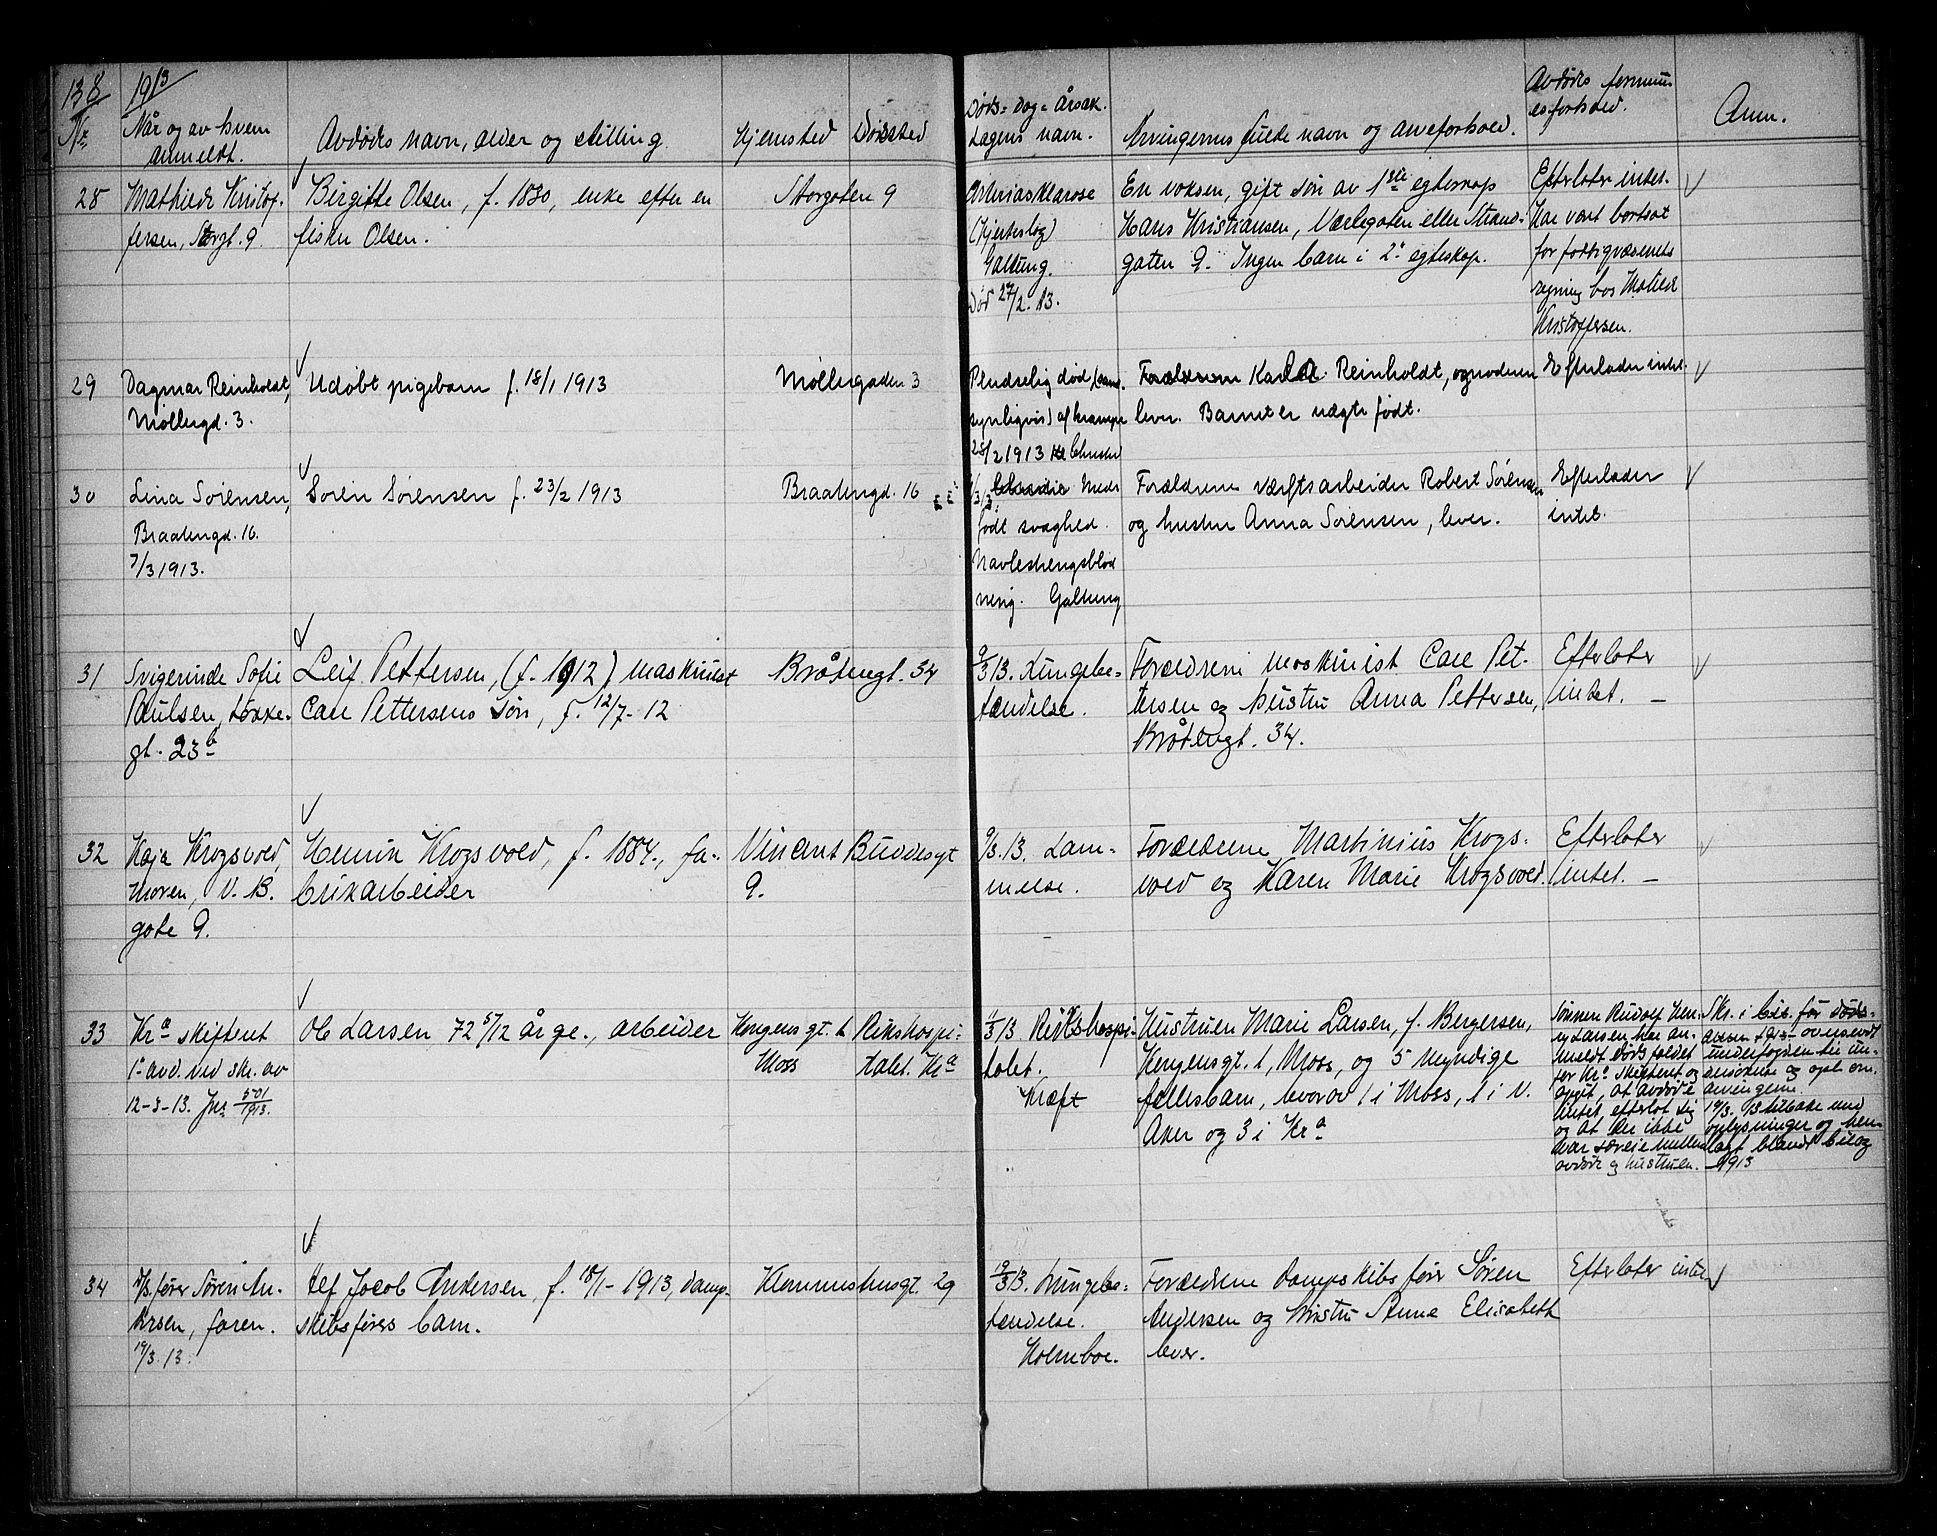 138 1913
Nr Når og av hvem anmeldt. Avdødes navn, alder og stilling. Hjemsted Dødssted Døds- dag- årsak. Lægens navn. Arvingernes fulde navn og arveforhold. Avdødes formuesforhold. Anm.
28 Mathilde Kristof-
fersen, Storgt. 9.
Birgitte Olsen, f. 1830, enke efter en
fisker Olsen.
Storgaten 9
(Hjerteslag)
Galtung.
Død 27/2. 13.
En voksen, gift søn av 1ste egteskap
Hans Kristiansen, Værlegaten eller Strand-
gaten 9. Ingen barn i 2. egteskap.
Efterlater intet.
Har vært bortsat
for fattigvæsenets
regning hos Matilde
Kristoffersen.
29 Dagmar Reinholdt,
Møllergd. 3.
Udøbt pigebarn f. 18/1 1913
Møllergaden 3
Pludselig død, (sand-
synligvis) af krampe
28/2 1913
Forældrene Karl Reinholdt, og moderen
lever. Barnet er uægte født.
Efterlader intet.
30 Lina Sørensen,
Braatengd. 16.
7/3 1913.
Søren Sørensen f. 23/2 1913
Braatengd. 16
Med-
født svaghed.
Navlestrengsblød
ning. Galtung
Forældrene værftsarbeider Robert Sørensen
og hustru Anna Sørensen, lever.
Efterlader
intet.
31 Svigerinde Sofie
Paulsen, Løkke-
gt. 23b
Leif Pettersen, (f. 1912) maskinist
Carl Pettersens søn, f. 12/7- 12
Bråtengt. 34
9/3 13. Lungebe-
tændelse.
Forældrene maskinist Carl Pet-
tersen og hustru Anna Pettersen,
Bråtengt. 34.
Efterlater
intet. —
32 Kaja Krogsvold,
moren, V. B.
gate 9.
Henrik Krogsvold, f. 1884, fa-
brikarbeider
Vincent Buddesgt
9.
9/3. 13. Lam-
melse.
Forældrene Martinius Krogs-
vold og Karen Marie Krogsvold.
Efterlater
intet. —
33 Kra skifteret
1. avd. ved skr. av
12-3-13. Jnr 501/1913.
Ole Larsen 72 5/12 år gl., arbeider
Kongens gt. 1
Moss
Rikshospi-
talet. Kra
11/3 13 Rikshospi-
talet.
Kræft
Hustruen Marie Larsen, f. Bergersen,
Kongensgt. 1, Moss, og 5 myndige
fællesbarn, hvorav 1 i Moss, 1 i V.
Aker og 3 i Kra
Sønnen Rudolf Hen-
ry Larsen har an-
meldt dødsfaldet
for Kra skifteret og
opgit, at avdøde
intet efterlot sig
og at der ikke
var særeie mellem
avdøde og hustruen.
Skr. i bil. for døds-
anm. 1913 oversendt
underfogden til un-
derretning og opl. om
arvingene.
19/3. 13 tilbake med
oplysninger og hen-
lagt blandt bilag
1913
34 D/s. fører Søren An-
dersen, faren.
19/3. 13.
Alf Jacob Andersen, f. 18/1- 1913, damp-
skibsførers barn.
Klommestensgt. 29
19/3 13. Lungebe-
tændelse.
Holmboe.
Forældrene dampskibsfører Søren
Andersen og hustru Anna Elisabeth
lever.
Efterlater intet